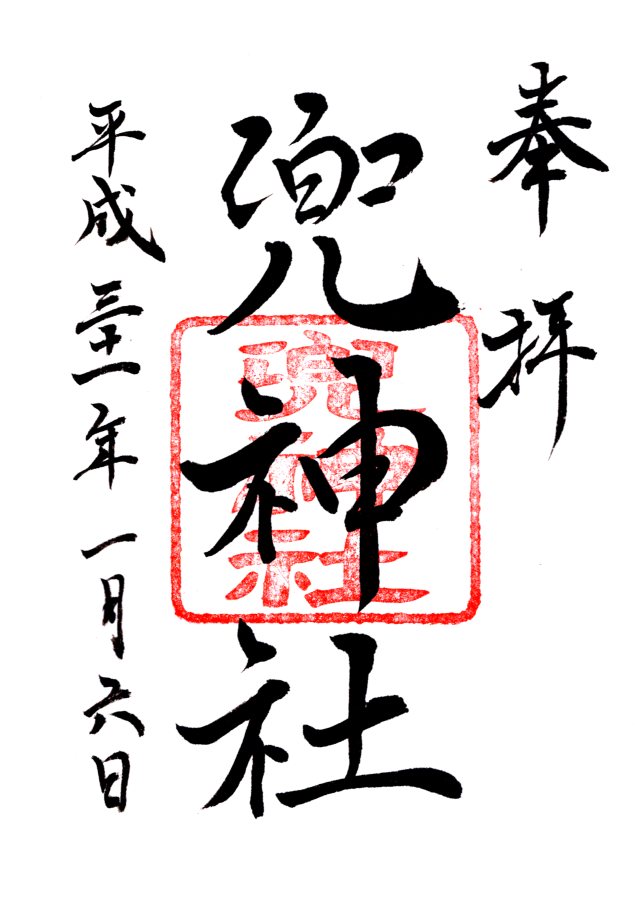 奉拝
兜神社
兜神社
平成三十一年一月六日